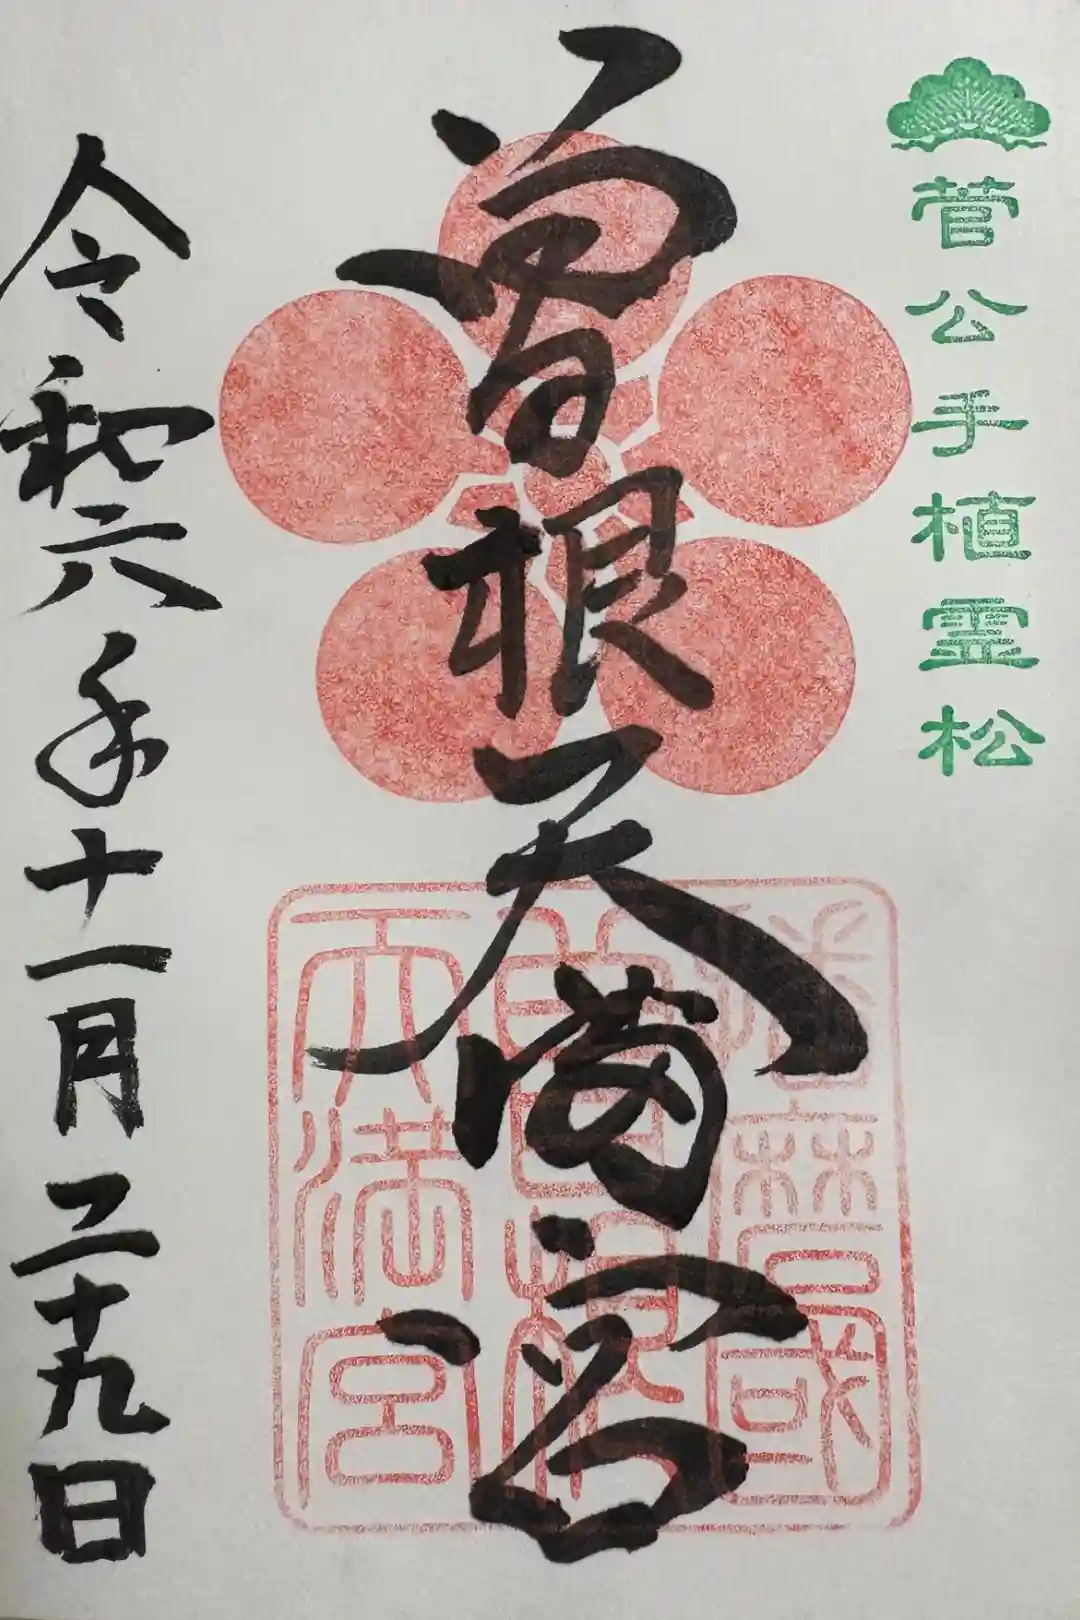 菅公手植霊松
曽根天満宮
播磨國
曽根
天満宮
令和六年十一月二十九日